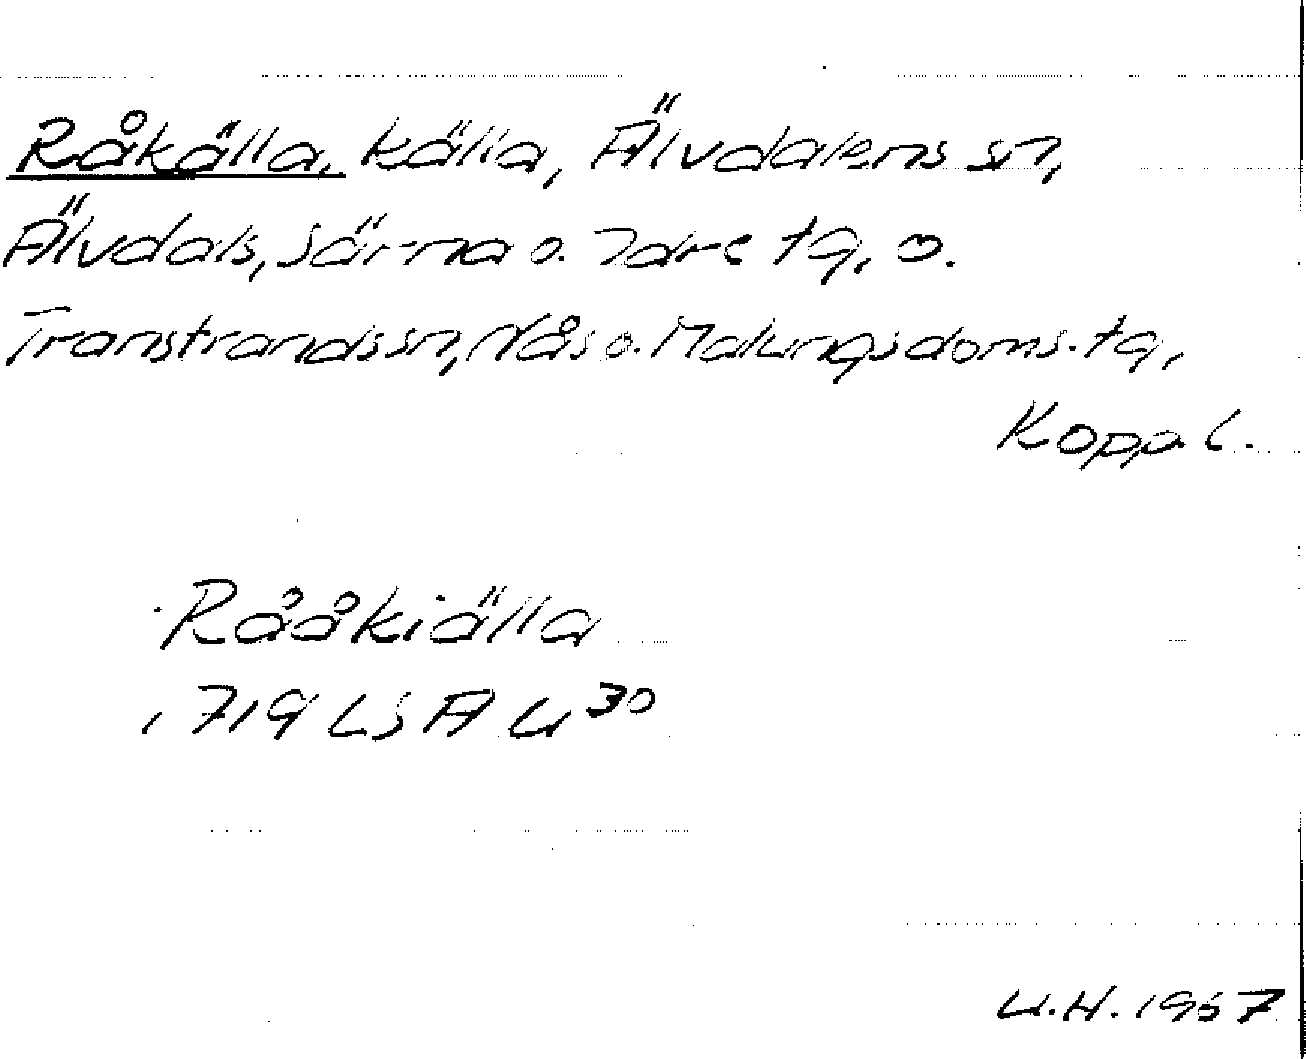 Råkälla, källa, Älvdalens sn,
Älvdals, Särna o. Idre tg, o.
Transtrands sn, Nås o. Malungs doms. tg,
Kopp. l.
Rååkiälla
1719 LSA U³⁰
U.H. 1967